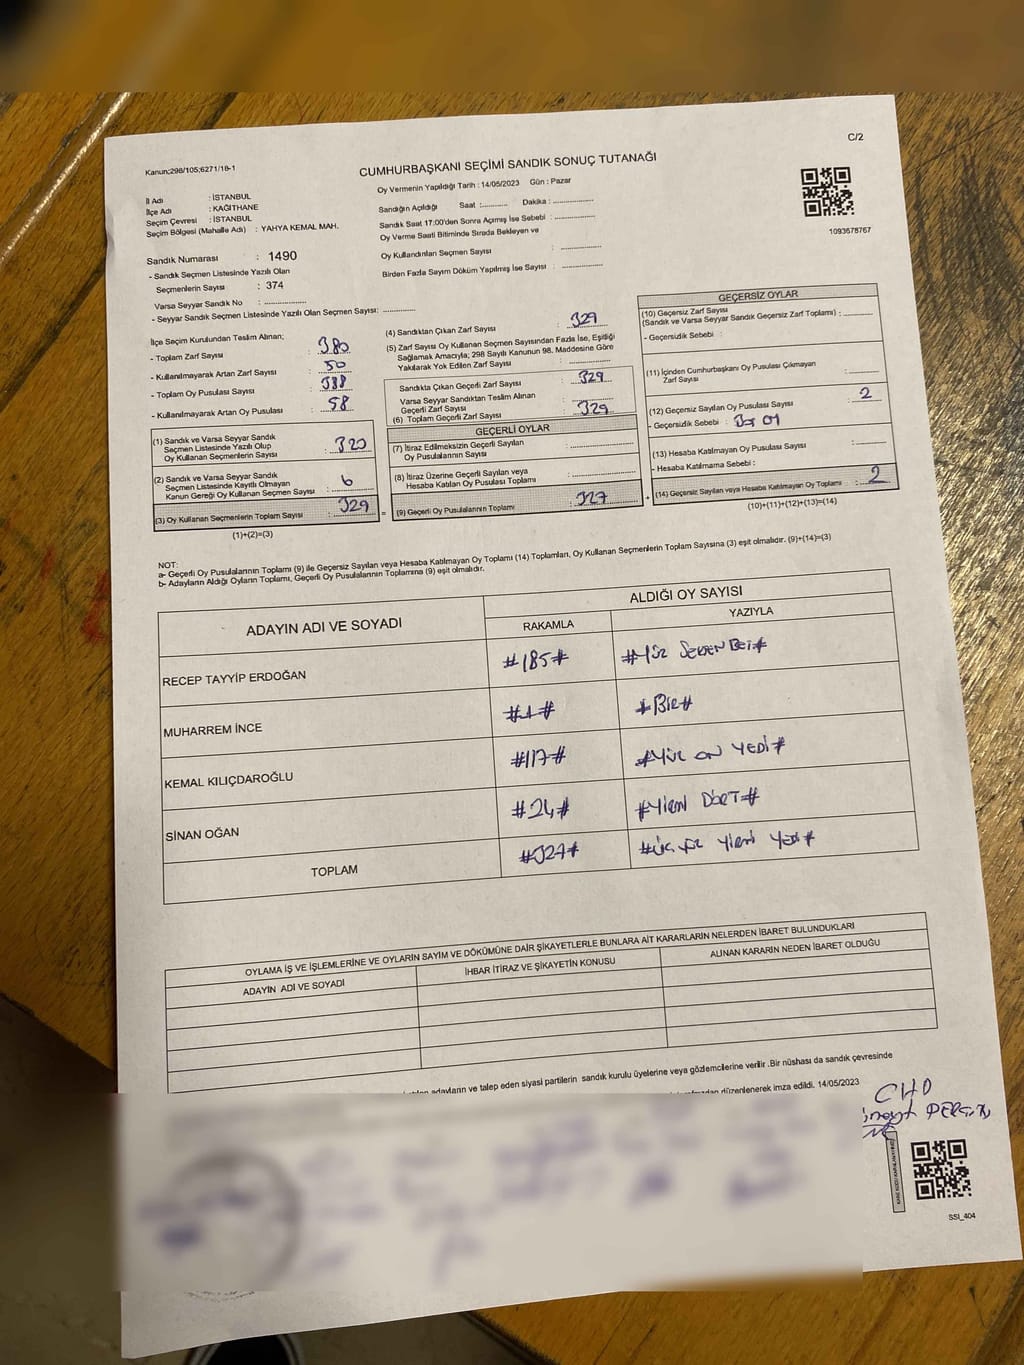 C/2
Kanun;298/105;6271/18-1
CUMHURBAŞKANI SEÇİMİ SANDIK SONUÇ TUTANAĞI
Oy Vermenin Yapıldığı Tarih : 14/05/2023 Gün : Pazar
İl Adı : İSTANBUL
İlçe Adı : KAĞITHANE
Seçim Çevresi : İSTANBUL
Seçim Bölgesi (Mahalle Adı) : YAHYA KEMAL MAH.
Sandığın Açıldığı Saat :........... Dakika : ................
Sandık Saat 17:00'den Sonra Açımış İse Sebebi : ................
Oy Verme Saati Bitiminde Sırada Bekleyen ve
Oy Kullandırılan Seçmen Sayısı : ................
Birden Fazla Sayım Döküm Yapılmış İse Sayısı : ................
1093578767
Sandık Numarası : 1490
- Sandık Seçmen Listesinde Yazılı Olan
Seçmenlerin Sayısı : 374
Varsa Seyyar Sandık No : ................
- Seyyar Sandık Seçmen Listesinde Yazılı Olan Seçmen Sayısı: ............
İlçe Seçim Kurulundan Teslim Alınan;
- Toplam Zarf Sayısı : 380
- Kullanılmayarak Artan Zarf Sayısı : 50
- Toplam Oy Pusulası Sayısı : 388
- Kullanılmayarak Artan Oy Pusulası : 58
(1) Sandık ve Varsa Seyyar Sandık
Seçmen Listesinde Yazılı Olup
Oy Kullanan Seçmenlerin Sayısı : 320
(2) Sandık ve Varsa Seyyar Sandık
Seçmen Listesinde Kayıtlı Olmayan
Kanun Gereği Oy Kullanan Seçmen Sayısı : 6
(3) Oy Kullanan Seçmenlerin Toplam Sayısı : 329
(1)+(2)=(3)
(4) Sandıktan Çıkan Zarf Sayısı : 329
(5) Zarf Sayısı Oy Kullanan Seçmen Sayısından Fazla İse, Eşitliği
Sağlamak Amacıyla; 298 Sayılı Kanunun 98. Maddesine Göre
Yakılarak Yok Edilen Zarf Sayısı : ................
Sandıkta Çıkan Geçerli Zarf Sayısı : 329
Varsa Seyyar Sandıktan Teslim Alınan
Geçerli Zarf Sayısı : ................
(6) Toplam Geçerli Zarf Sayısı : 329
GEÇERLİ OYLAR
(7) İtiraz Edilmeksizin Geçerli Sayılan
Oy Pusulalarının Sayısı : ................
(8) İtiraz Üzerine Geçerli Sayılan veya
Hesaba Katılan Oy Pusulası Toplamı : ................
(9) Geçerli Oy Pusulalarının Toplamı : 327
GEÇERSİZ OYLAR
(10) Geçersiz Zarf Sayısı
(Sandık ve Varsa Seyyar Sandık Geçersiz Zarf Toplamı) : ..........
- Geçersizlik Sebebi :
(11) İçinden Cumhurbaşkanı Oy Pusulası Çıkmayan
Zarf Sayısı : ..........
(12) Geçersiz Sayılan Oy Pusulası Sayısı : 2
- Geçersizlik Sebebi :
(13) Hesaba Katılmayan Oy Pusulası Sayısı : ..........
- Hesaba Katılmama Sebebi :
(14) Geçersiz Sayılan veya Hesaba Katılmayan Oy Toplamı : 2
(10)+(11)+(12)+(13)=(14)
NOT:
a- Geçerli Oy Pusulalarının Toplamı (9) ile Geçersiz Sayılan veya Hesaba Katılmayan Oy Toplamı (14) Toplamları, Oy Kullanan Seçmenlerin Toplam Sayısına (3) eşit olmalıdır. (9)+(14)=(3)
b- Adayların Aldığı Oyların Toplamı, Geçerli Oy Pusulalarının Toplamına (9) eşit olmalıdır.
ADAYIN ADI VE SOYADI
ALDIĞI OY SAYISI
RAKAMLA YAZIYLA
RECEP TAYYİP ERDOĞAN #185# #Yüz SEKSEN BEŞ#
MUHARREM İNCE #1# #BİR#
KEMAL KILIÇDAROĞLU #117# #YÜZ ON YEDİ#
SİNAN OĞAN #24# #YİRMİ DÖRT#
TOPLAM #327# #ÜÇ YÜZ YİRMİ YEDİ#
OYLAMA İŞ VE İŞLEMLERİNE VE OYLARIN SAYIM VE DÖKÜMÜNE DAİR ŞİKAYETLERLE BUNLARA AİT KARARLARIN NELERDEN İBARET BULUNDUKLARI
ADAYIN ADI VE SOYADI İHBAR İTİRAZ VE ŞİKAYETİN KONUSU ALINAN KARARIN NEDEN İBARET OLDUĞU
adayların ve talep eden siyasi partilerin sandık kurulu üyelerine veya gözlemcilerine verilir .Bir nüshası da sandık çevresinde
düzenlenerek imza edildi. 14/05/2023
SSI_404